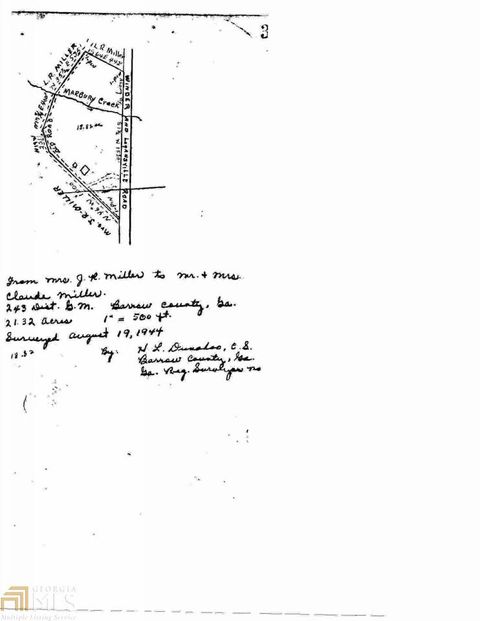 3
L.R. Miller
L.R. MILLER
MARBURY CREEK
WINDER AND LOGANSVILLE ROAD
OLD ROAD
18.82 ac
MRS. J.R. MILLER
From Mrs. J. R. Miller to Mr. & Mrs.
Claude Miller.
243 Dist. G.M. Barrow County, Ga.
21.32 acres 1" = 500 ft.
Surveyed August 19, 1944
18.82 By: H. L. Dunahoo, C.S.
Barrow County, Ga.
Ga. Reg. Surveyor no
GEORGIA
MLS
Multiple Listing Service